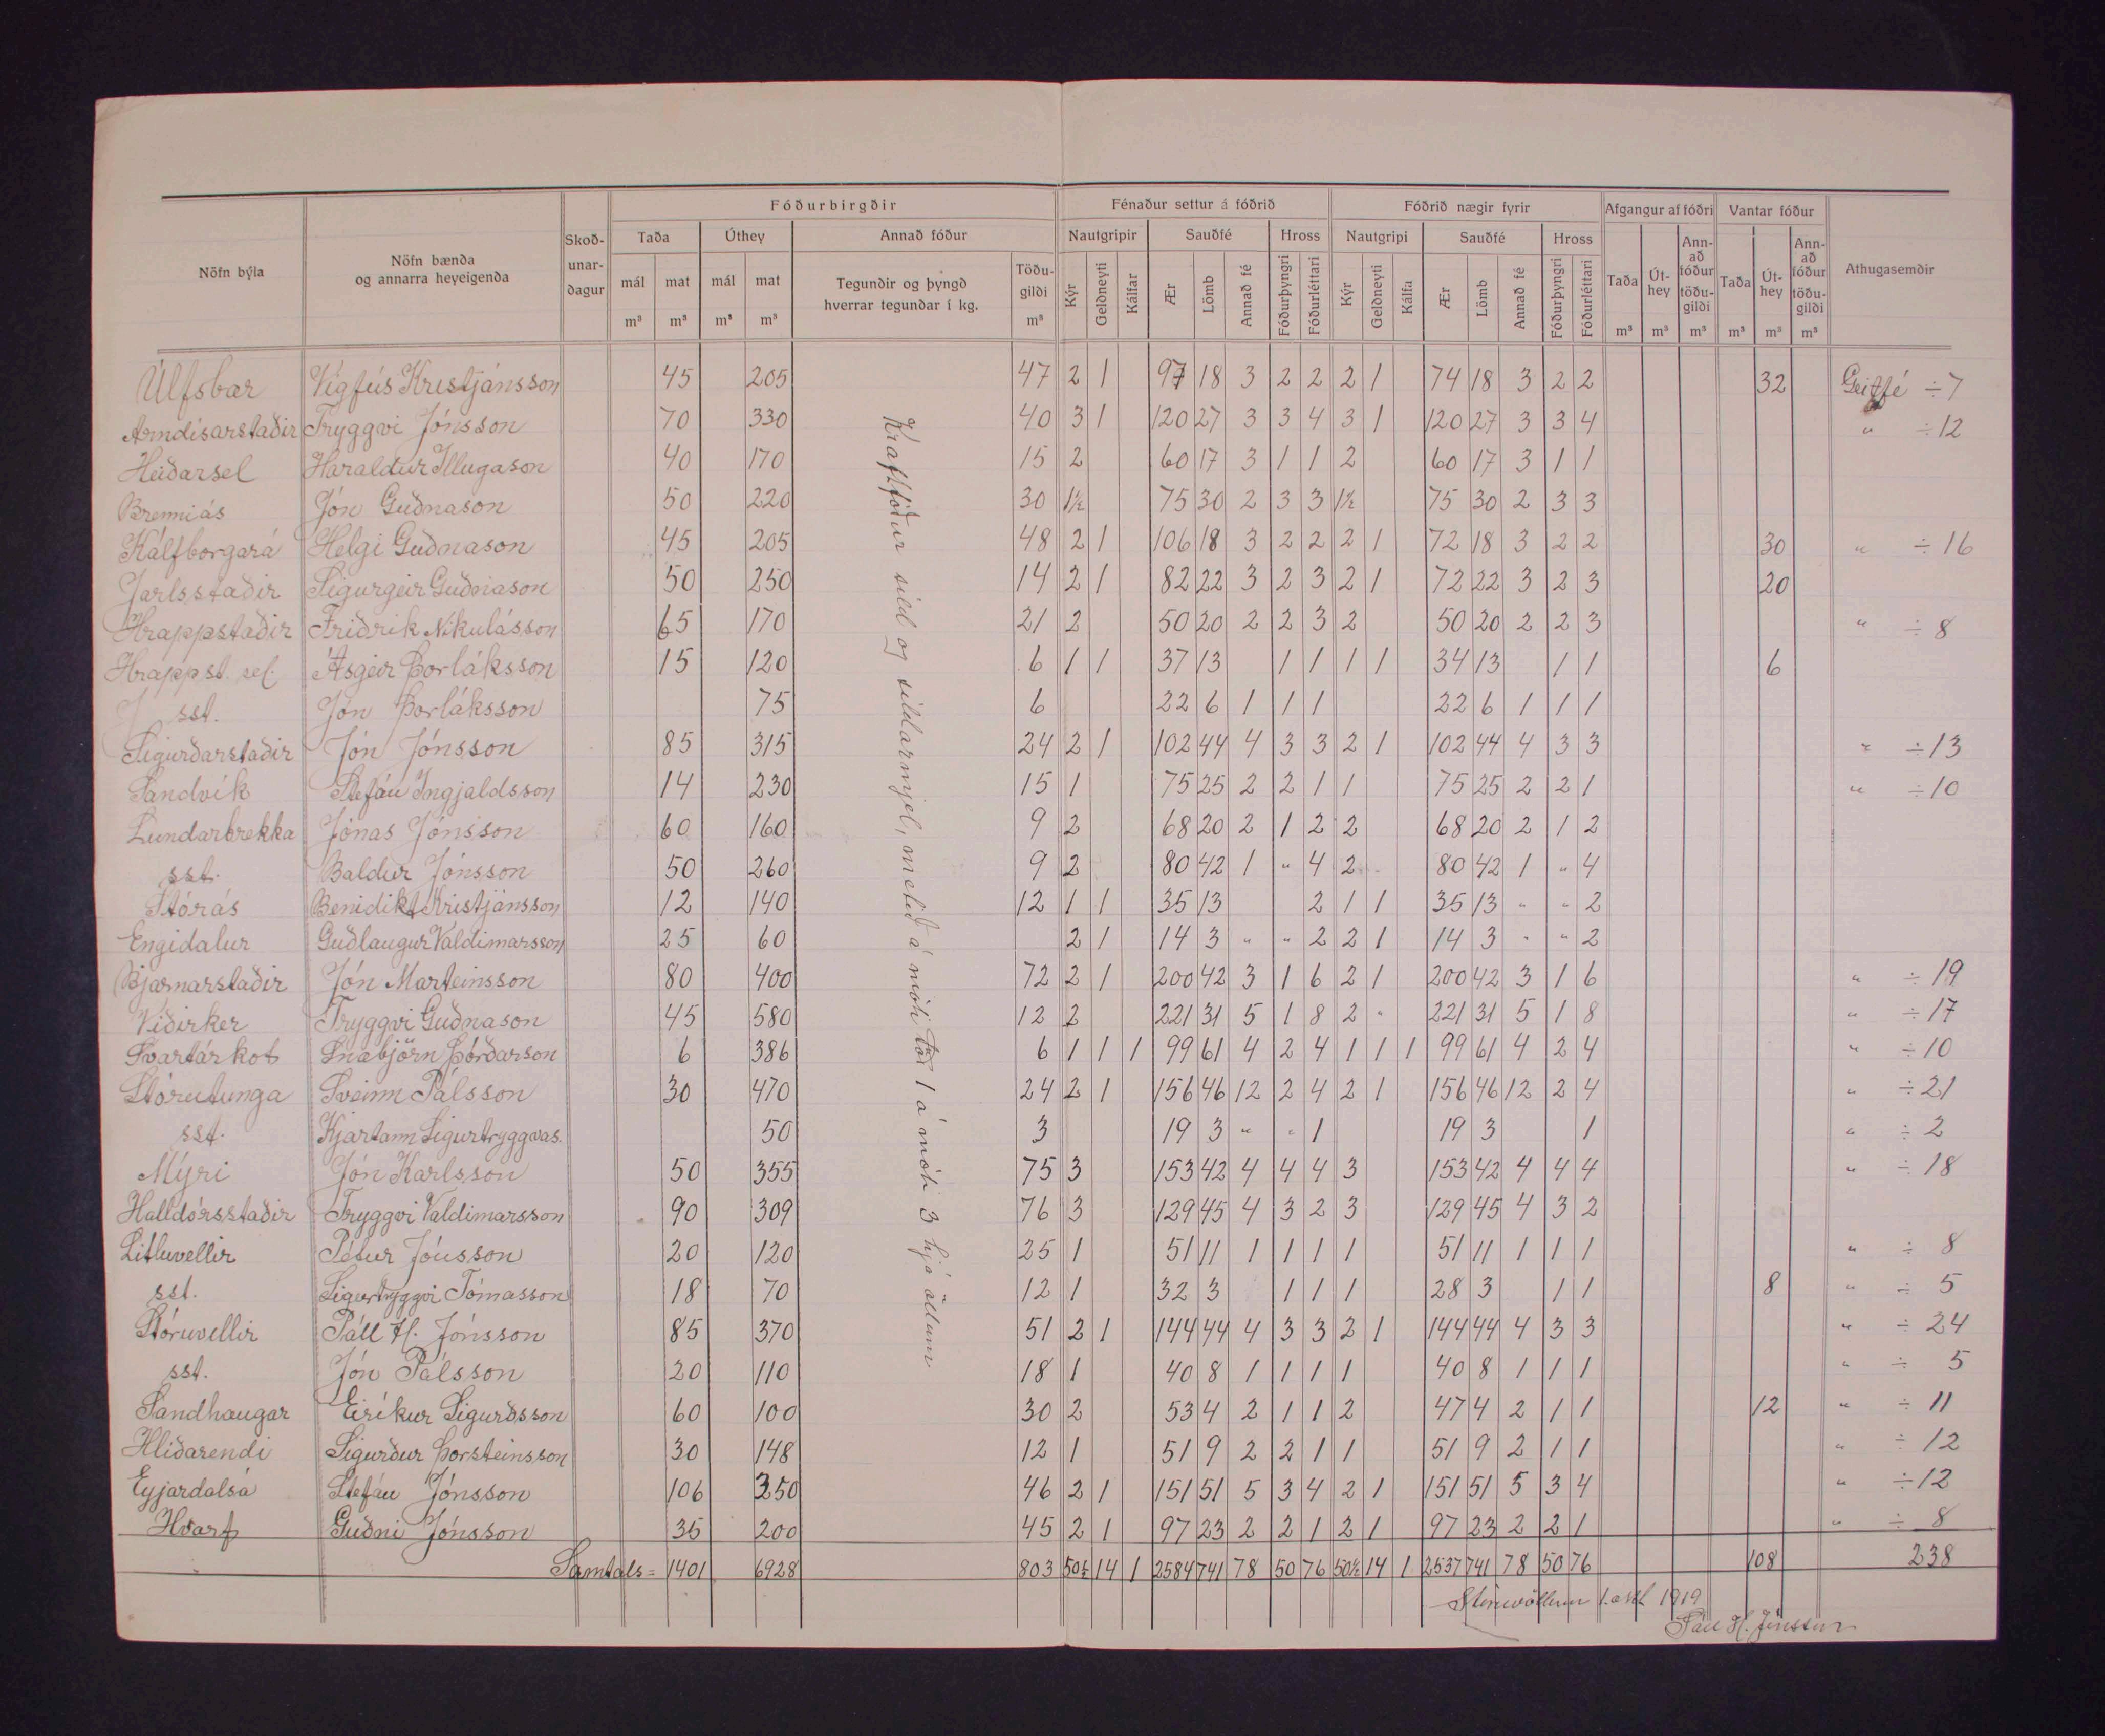 Fóðurbirgðir Fénaður settur á fóðrið Fóðrið nægir fyrir Afgangur af fóðri Vantar fóður
Nöfn býla Nöfn bænda og annarra heyeigenda Skoðunardagur Taða Úthey Annað fóður Nautgripir Sauðfé Hross Nautgripi Sauðfé Hross Athugasemdir
mál m³ mat m³ mál m³ mat m³ Tegundir og þyngd hverrar tegundar í kg. Töðugildi m³ Kýr Geldneyti Kálfar Ær Lömb Annað fé Fóðurþyngri Fóðurléttari Kýr Geldneyti Kálfa Ær Lömb Annað fé Fóðurþyngri Fóðurléttari Taða m³ Úthey m³ Annað fóður töðugildi m³ Taða m³ Úthey m³ Annað fóður töðugildi m³
Úlfsbær Vigfús Kristjánsson 45 205 47 2 1 97 18 3 2 2 2 1 74 18 3 2 2 32 Geitfé ÷ 7
Arndísarstaðir Tryggvi Jónsson 70 330 40 3 1 120 27 3 3 4 3 1 120 27 3 3 4 " ÷ 12
Heiðarsel Haraldur Illugason 40 170 15 2 60 17 3 1 1 2 60 17 3 1 1
Brenniás Jón Guðnason 50 220 30 1½ 75 30 2 3 3 1½ 75 30 2 3 3
Kálfborgará Helgi Guðnason 45 205 48 2 1 106 18 3 2 2 2 1 72 18 3 2 2 30 " ÷ 16
Jarlsstaðir Sigurgeir Guðnason 50 250 14 2 1 82 22 3 2 3 2 1 72 22 3 2 3 20
Hrappstaðir Friðrik Nikulásson 65 170 21 2 50 20 2 2 3 2 50 20 2 2 3 " ÷ 8
Hrappst. sel. Ásgeir Þorláksson 15 120 6 1 1 37 13 1 1 1 1 34 13 1 1 6
sst. Jón Þorláksson 75 6 22 6 1 1 1 22 6 1 1 1
Sigurðarstaðir Jón Jónsson 85 315 24 2 1 102 44 4 3 3 2 1 102 44 4 3 3 " ÷ 13
Sandvík Stefán Ingjaldsson 14 230 15 1 75 25 2 2 1 1 75 25 2 2 1 " ÷ 10
Lundarbrekka Jónas Jónsson 60 160 9 2 68 20 2 1 2 2 68 20 2 1 2
sst. Baldur Jónsson 50 260 9 2 80 42 1 " 4 2 80 42 1 " 4
Stórás Benidikt Kristjánsson 12 140 12 1 1 35 13 2 1 1 35 13 " " 2
Engidalur Guðlaugur Valdimarsson 25 60 2 1 14 3 " " 2 2 1 14 3 " " 2
Bjarnarstaðir Jón Marteinsson 80 400 72 2 1 200 42 3 1 6 2 1 200 42 3 1 6 " ÷ 19
Víðirker Tryggvi Guðnason 45 580 12 2 221 31 5 1 8 2 " 221 31 5 1 8 " ÷ 17
Svartárkot Snæbjörn Þórðarson 6 386 6 1 1 1 99 61 4 2 4 1 1 1 99 61 4 2 4 " ÷ 10
Stórutunga Sveinn Pálsson 30 470 24 2 1 156 46 12 2 4 2 1 156 46 12 2 4 " ÷ 21
sst. Kjartann Sigurtryggvas. 50 3 19 3 " " 1 19 3 1 " ÷ 2
Mýri Jón Karlsson 50 355 75 3 153 42 4 4 4 3 153 42 4 4 4 " ÷ 18
Halldórsstaðir Tryggvi Valdimarsson 90 309 76 3 129 45 4 3 2 3 129 45 4 3 2
Litluvellir Pétur Jónsson 20 120 25 1 51 11 1 1 1 1 51 11 1 1 1 " ÷ 8
sst. Sigurtryggvi Tómasson 18 70 12 1 32 3 1 1 1 28 3 1 1 8 " ÷ 5
Stóruvellir Páll H. Jónsson 85 370 51 2 1 144 44 4 3 3 2 1 144 44 4 3 3 " ÷ 24
sst. Jón Pálsson 20 110 18 1 40 8 1 1 1 1 40 8 1 1 1 " ÷ 5
Sandhaugar Eiríkur Sigurðsson 60 100 30 2 53 4 2 1 1 2 47 4 2 1 1 12 " ÷ 11
Hlíðarendi Sigurður Þorsteinsson 30 148 12 1 51 9 2 2 1 1 51 9 2 1 1 " ÷ 12
Eyjardalsá Stefán Jónsson 106 350 46 2 1 151 51 5 3 4 2 1 151 51 5 3 4 " ÷ 12
Hvarf Guðni Jónsson 35 200 45 2 1 97 23 2 2 1 2 1 97 23 2 2 1 " ÷ 8
Samtals = 1401 6928 803 50½ 14 1 2584 741 78 50 76 50½ 14 1 2537 741 78 50 76 108 238
Kraftfóður síld og síldarmjel, metið á móti töð 1 á móti 3 hjá öllum
1919
Páll H. Jónsson